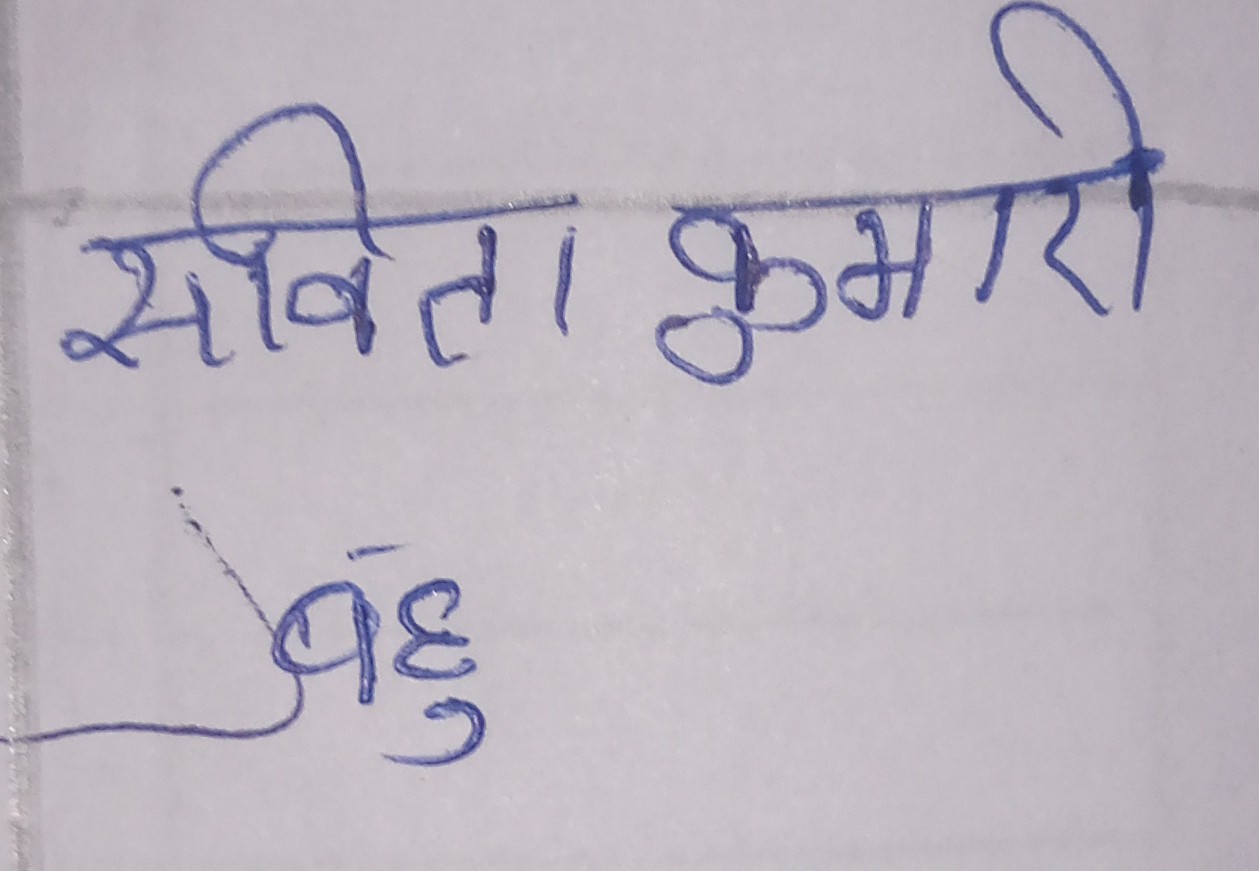 सविता कुमारी
बहु